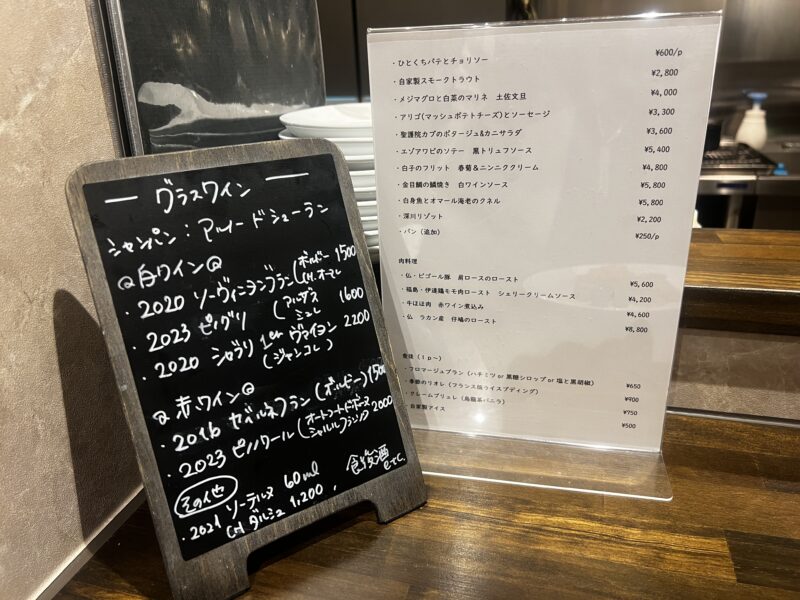 グラスワイン
シャンパン：アルノードシューラン
白ワイン
・2020 ソーヴィニヨンブラン（ボルドー CH.オーマレ 1500
・2023 ピノグリ（アルザス ミュレ 1600
・2020 シャブリ 1er ヴァイヨン（ジャンコレ） 2200
赤ワイン
・2016 カベルネフラン（ボルドー） 1500
・2023 ピノノワール（オートコートドボーヌ 2000
その他
・2021 ソーテルヌ 60ml
CH ダルシュ 1,200、
食後酒 etc.
・ひとくちパテとチョリソー ¥600/p
・自家製スモークトラウト ¥2,800
・メジマグロと白菜のマリネ 土佐文旦 ¥4,000
・アリゴ(マッシュポテトチーズ)とソーセージ ¥3,300
・聖護院カブのポタージュ&カニサラダ ¥3,600
・エゾアワビのソテー 黒トリュフソース ¥5,400
・白子のフリット 春菊＆ニンニククリーム ¥4,800
・金目鯛の鱗焼き 白ワインソース ¥5,800
・白身魚とオマール海老のクネル ¥5,800
・深川リゾット ¥2,200
・パン（追加） ¥250/p
肉料理
・仏・ビゴール豚 肩ロースのロースト ¥5,600
・福島・伊達鶏モモ肉ロースト シェリークリームソース ¥4,200
・牛ほほ肉 赤ワイン煮込み ¥4,600
・仏 ラカン産 仔鳩のロースト ¥8,800
食後（1p～）
・フロマージュブラン（ハチミツ or 黒糖シロップ or 塩と黒胡椒） ¥650
・季節のリオレ（フランス版ライスプディング） ¥900
・クレームブリュレ（烏龍茶バニラ） ¥750
・自家製アイス ¥500